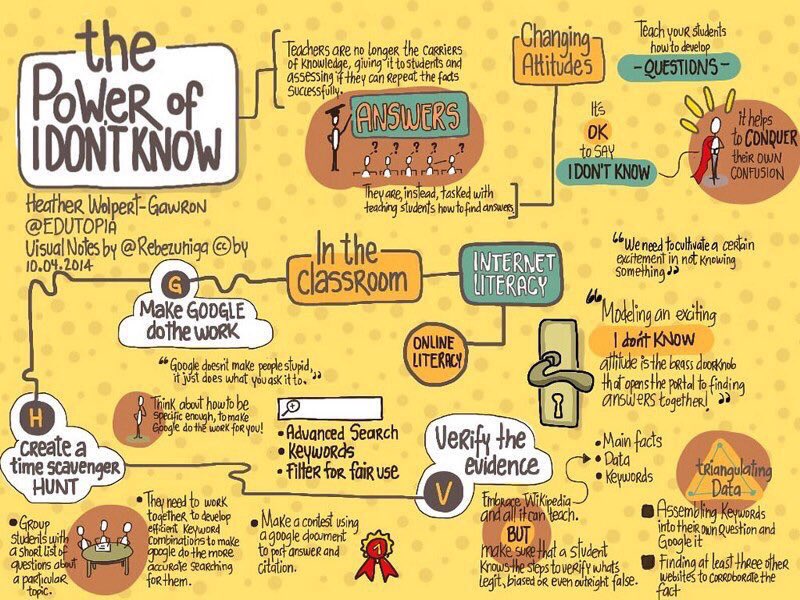 the
Power of
I DON'T KNOW
Heather Wolpert-Gawron
@EDUTOPIA
Visual Notes by @Rebezuniga cc by
10.04.2014
Teachers are no longer the carriers
of knowledge, giving it to students and
assessing if they can repeat the facts
successfully.
ANSWERS
? ? ? ? ?
They are, instead, tasked with
teaching students how to find answers
Changing
Attitudes
Teach your students
how to develop
- QUESTIONS -
It's
OK
to SAY
I DON'T KNOW
it helps
to CONQUER
their own
CONFUSION
In the
classroom
INTERNET
LITERACY
ONLINE
LITERACY
"We need to cultivate a certain
excitement in not knowing
something"
"Modeling an exciting
I don't KNOW
attitude is the brass doorknob
that opens the portal to finding
answers together!"
G
Make GOOGLE
do the WORK
"Google doesn't make people stupid,
it just does what you ask it to."
Think about how to be
specific enough, to make
Google do the work for you!
• Advanced Search
• Keywords
• Filter for fair use
H
Create a
time scavenger
HUNT
• Group
students with
a short list of
questions about
a particular
topic.
• They need to work
together to develop
efficient keyword
combinations to make
google do the more
accurate searching
for them.
• Make a contest using
a google document
to port answer and
citation.
1
Verify the
evidence
V
• Main facts
• Data
• Keywords
Embrace Wikipedia
and all it can teach.
BUT
make sure that a student
knows the steps to verify what's
legit, biased or even outright false.
triangulating
Data
Assembling Keywords
into their own Question and
Google it
Finding at least three other
websites to corroborate the
fact